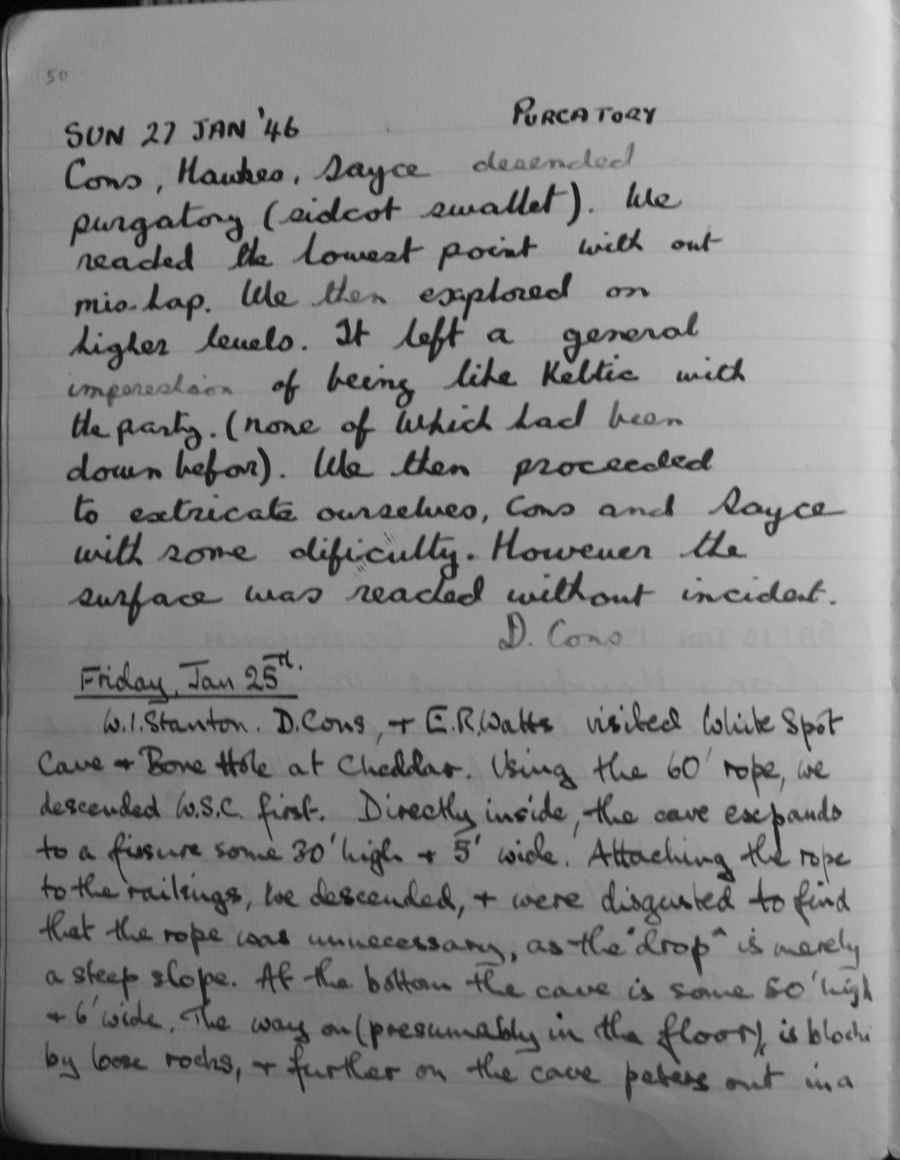 50
SUN 27 JAN '46 PURGATORY
Cons, Hawkes, Sayce desended
purgatory (sidcot swallet). We
reached the lowest point with out
mis-hap. We then explored on
higher levels. It left a general
impression of being like Keltic with
the party. (none of which had been
down befor). We then proceeded
to extricate ourselves, Cons and Sayce
with some dificulty. However the
surface was reached without incident.
D. Cons
Friday, Jan 25th.
W.I. Stanton. D. Cons, + E.R. Watts visited White Spot
Cave + Bone Hole at Cheddar. Using the 60' rope, we
descended W.S.C. first. Directly inside, the cave expands
to a fissure some 30' high + 5' wide. Attaching the rope
to the railings, we descended, + were disgusted to find
that the rope was unnecessary, as the "drop" is merely
a steep slope. At the bottom the cave is some 50' high
+ 6' wide. The way on (presumably in the floor), is block
by loose rocks, + further on the cave peters out in a